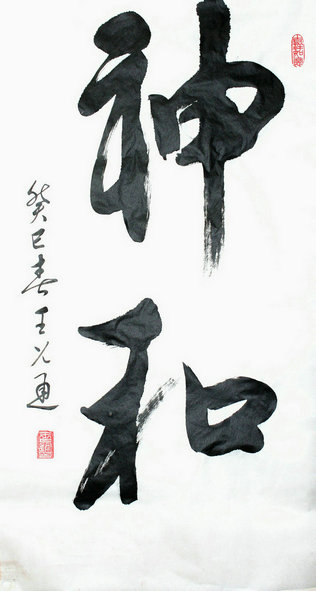 神
和
癸巳春王以通